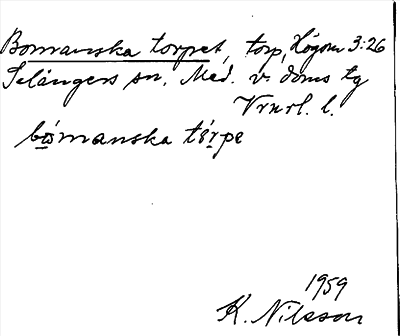 Bomanska torpet, torp, Högom 3:26
Selångers sn, Med. v. doms tg
Vrnrl. l.
bómanska tórpe
1959
K. Nilsson